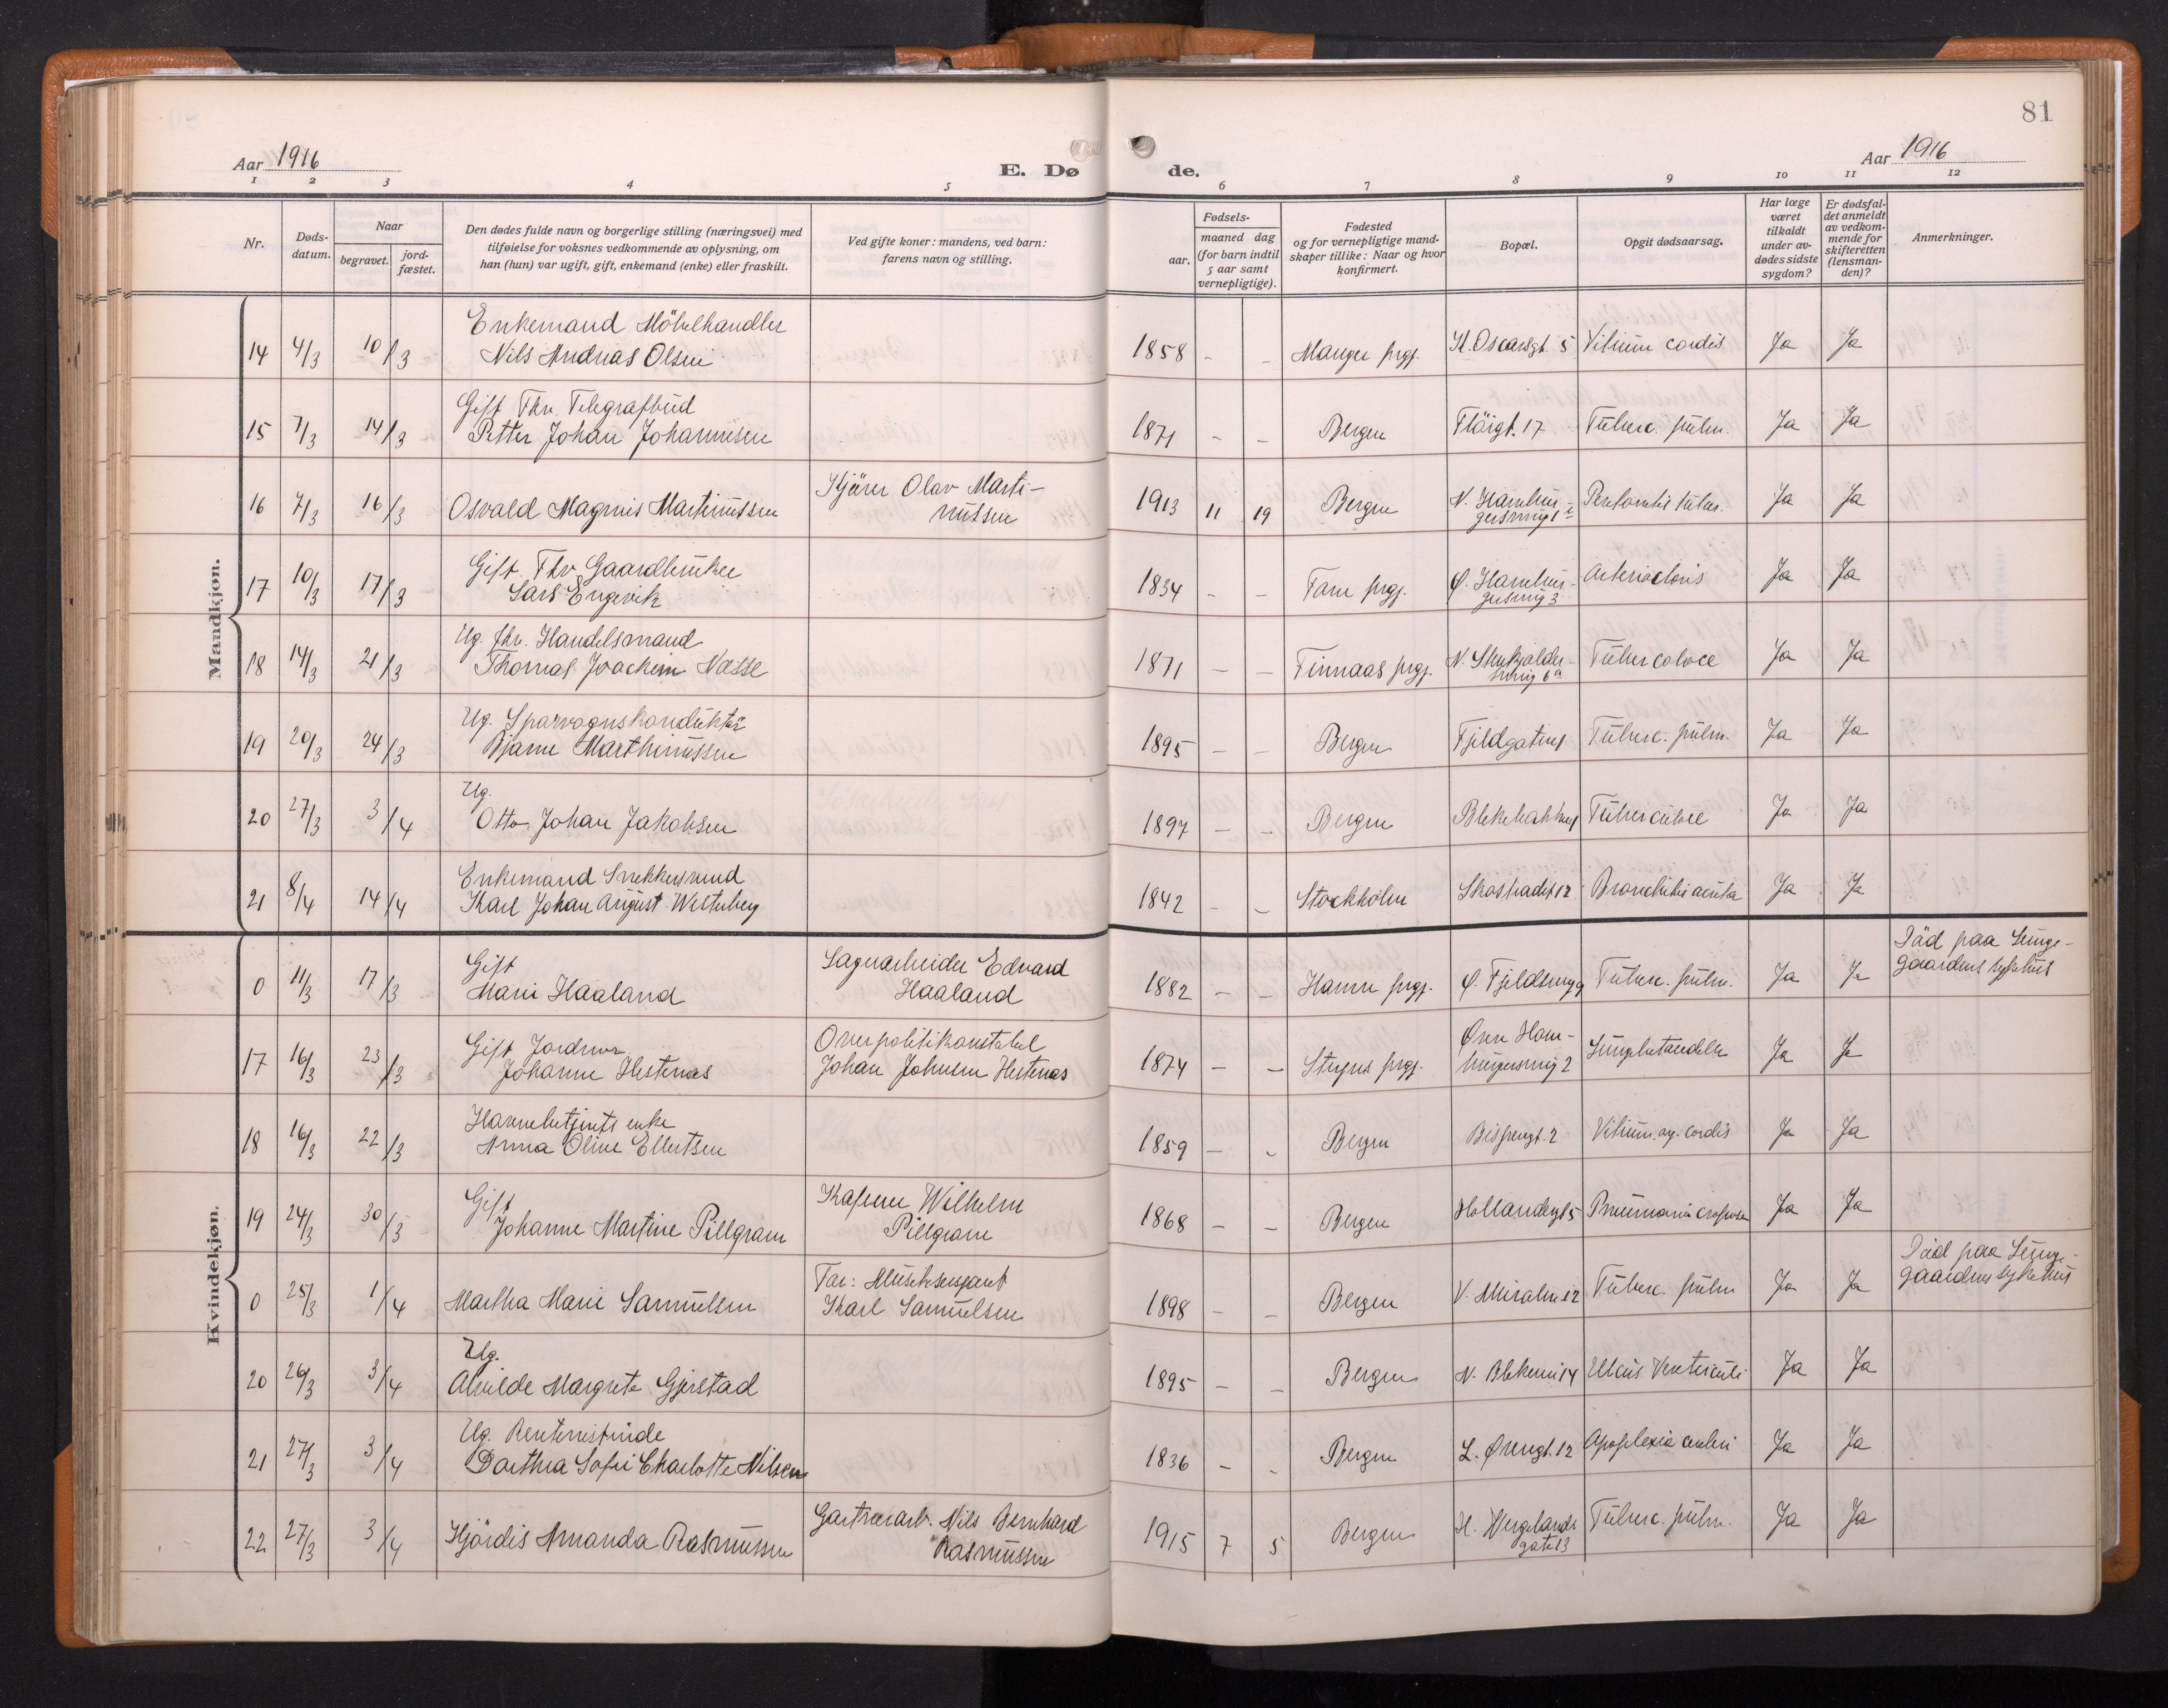 81
Aar 1916
E. Dø de.
Aar 1916
1 2 3 4 5 6 7 8 9 10 11 12
Nr.
Døds-
datum.
Naar
begravet.
jord-
fæstet.
Den dødes fulde navn og borgerlige stilling (næringsvei) med
tilføielse for voksnes vedkommende av oplysning, om
han (hun) var ugift, gift, enkemand (enke) eller fraskilt.
Ved gifte koner: mandens, ved barn:
farens navn og stilling.
Fødsels-
aar.
maaned dag
(for barn indtil
5 aar samt
vernepligtige).
Fødested
og for vernepligtige mand-
skaper tillike: Naar og hvor
konfirmert.
Bopæl.
Opgit dødsaarsag.
Har læge
været
tilkaldt
under av-
dødes sidste
sygdom?
Er dødsfal-
det anmeldt
av vedkom-
mende for
skifteretten
(lensman-
den)?
Anmerkninger.
Mandkjøn.
Enkemand Möbelhandler
14 4/3 10/3 Nils Andreas Olsen 1858 - - Manger prgj. K. Oscarsgt. 5 Vitium cordis Ja Ja
Gift Fhv. Telegrafbud
15 7/3 14/3 Petter Johan Johannesen 1871 - - Bergen Fløigt. 17 Tuberc. pulm. Ja Ja
16 7/3 16/3 Osvald Magnus Martinussen Kjører Olav Marti-
nussen 1913 11 19 Bergen Ja Ja
Gift. Fhv. Gaardbruker
17 10/3 17/3 Lars Engevik 1834 - - Fane prgj. Ø. Hambur-
gersmug 3 Ja Ja
Ug. fhv. Handelsmand
18 14/3 21/3 Thomas Joachim Næsse 1871 - - Finnaas prgj. Tuberculose Ja Ja
Ug. Sporvognskonduktør
19 20/3 24/3 Bjarne Marthinussen 1895 - - Bergen Tuberc. pulm. Ja Ja
Ug.
20 27/3 3/4 Otto Johan Jakobsen 1897 - - Bergen Tuberculose Ja Ja
Enkemand Snekkersvend
21 8/4 14/4 Karl Johan August Westerberg 1842 - - Stockholm Skostrædet 12 Bronchitis acuta Ja Ja
Kvindekjøn.
Gift
0 11/3 17/3 Marie Haaland Sagarbeider Edvard
Haaland 1882 - - Hamre prgj. Ø. Fjeldsmug 9 Tuberc. pulm. Ja Ja Död paa Lunge-
gaardens sykehus
Gift Jordmor
17 16/3 23/3 Johanne Hestenæs Overpolitikonstabel
Johan Johnsen Hestenæs 1874 - - Stryns prgj. Øvre Ham-
burgersmug 2 Lungebetændelse Ja Ja
Havnebetjents enke
18 16/3 22/3 Anna Oline Ellertsen 1859 - - Bergen Bispengt. 2 Vitium org. cordis Ja Ja
Gift
19 24/3 30/3 Johanne Martine Pillgram Wilhelm
Pillgram 1868 - - Bergen Hollendergt 5 Pneumonia crouposa Ja Ja
0 25/3 1/4 Martha Marie Samuelsen Far: Musiksersjant
Karl Samuelsen 1898 - - Bergen V. Muralm. 12 Tuberc. pulm Ja Ja Död paa Lunge-
gaardens sykehus
Ug.
20 26/3 3/4 Alvilde Margrete Gjerstad 1895 - - Bergen Ulcus Ventriculi Ja Ja
Ug. Renteristinde
21 27/3 3/4 Dorthea Sofie Charlotte Nilsen 1836 - - Bergen L. Øvregt. 12 Apoplexia cerebri Ja Ja
22 27/3 3/4 Hjördis Amanda Rasmussen Gartnerarb. Nils Bernhard
Rasmussen 1915 7 5 Bergen H. Wergelands
gate 13 Tuberc. pulm. Ja Ja